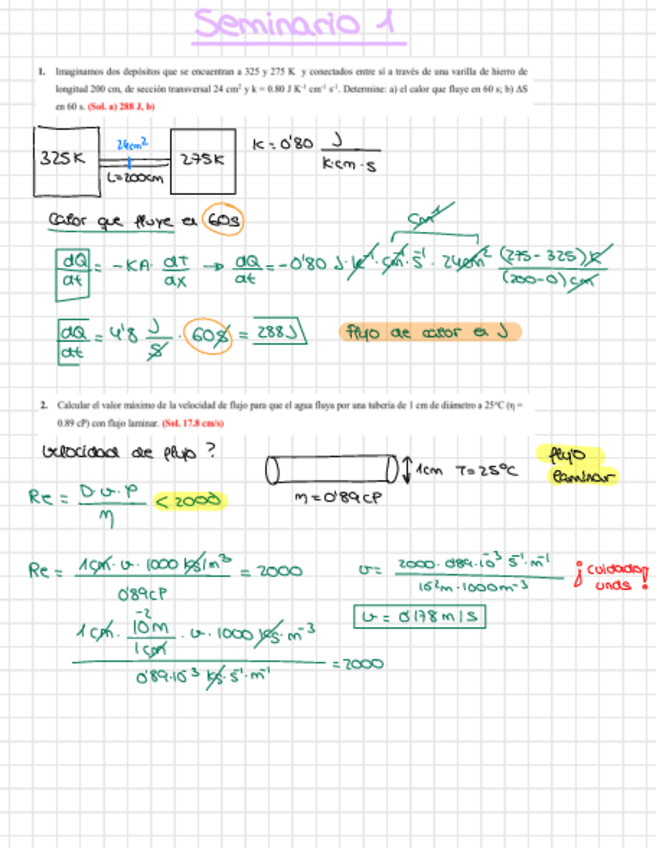 Seminario 1
1. Imaginamos dos depósitos que se encuentran a 325 y 275 K y conectados entre sí a través de una varilla de hierro de
longitud 200 cm, de sección transversal 24 cm² y k = 0.80 J K⁻¹ cm⁻¹ s⁻¹. Determine: a) el calor que fluye en 60 s; b) ΔS
en 60 s. (Sol. a) 288 J, b)
325K 24cm² L=200cm 275K K=0'80 J / K·cm·s
Calor que fluye en 60s
dQ/dt = -KA · dT/dx → dQ/dt = -0'80 J·K⁻¹·cm⁻¹·s⁻¹ · 24cm² (275-325)K / (200-0)cm
dQ/dt = 4'8 J/s · 60s = 288J flujo de calor en J
2. Calcular el valor máximo de la velocidad de flujo para que el agua fluya por una tubería de 1 cm de diámetro a 25°C (η =
0.89 cP) con flujo laminar. (Sol. 17.8 cm/s)
Velocidad de flujo? 1cm T=25°C flujo laminar
η=0'89cP
Re = D·v·ρ / η < 2000
Re = 1cm·v·1000 kg/m³ / 0'89cP = 2000
1cm · 10⁻²m/1cm · v · 1000 kg·m⁻³ / 0'89·10⁻³ kg·s⁻¹·m⁻¹ = 2000
v = 2000·0'89·10⁻³ s⁻¹·m⁻¹ / 10⁻²m·1000m⁻³ ¡cuidado unds!
v = 0'178 m/s